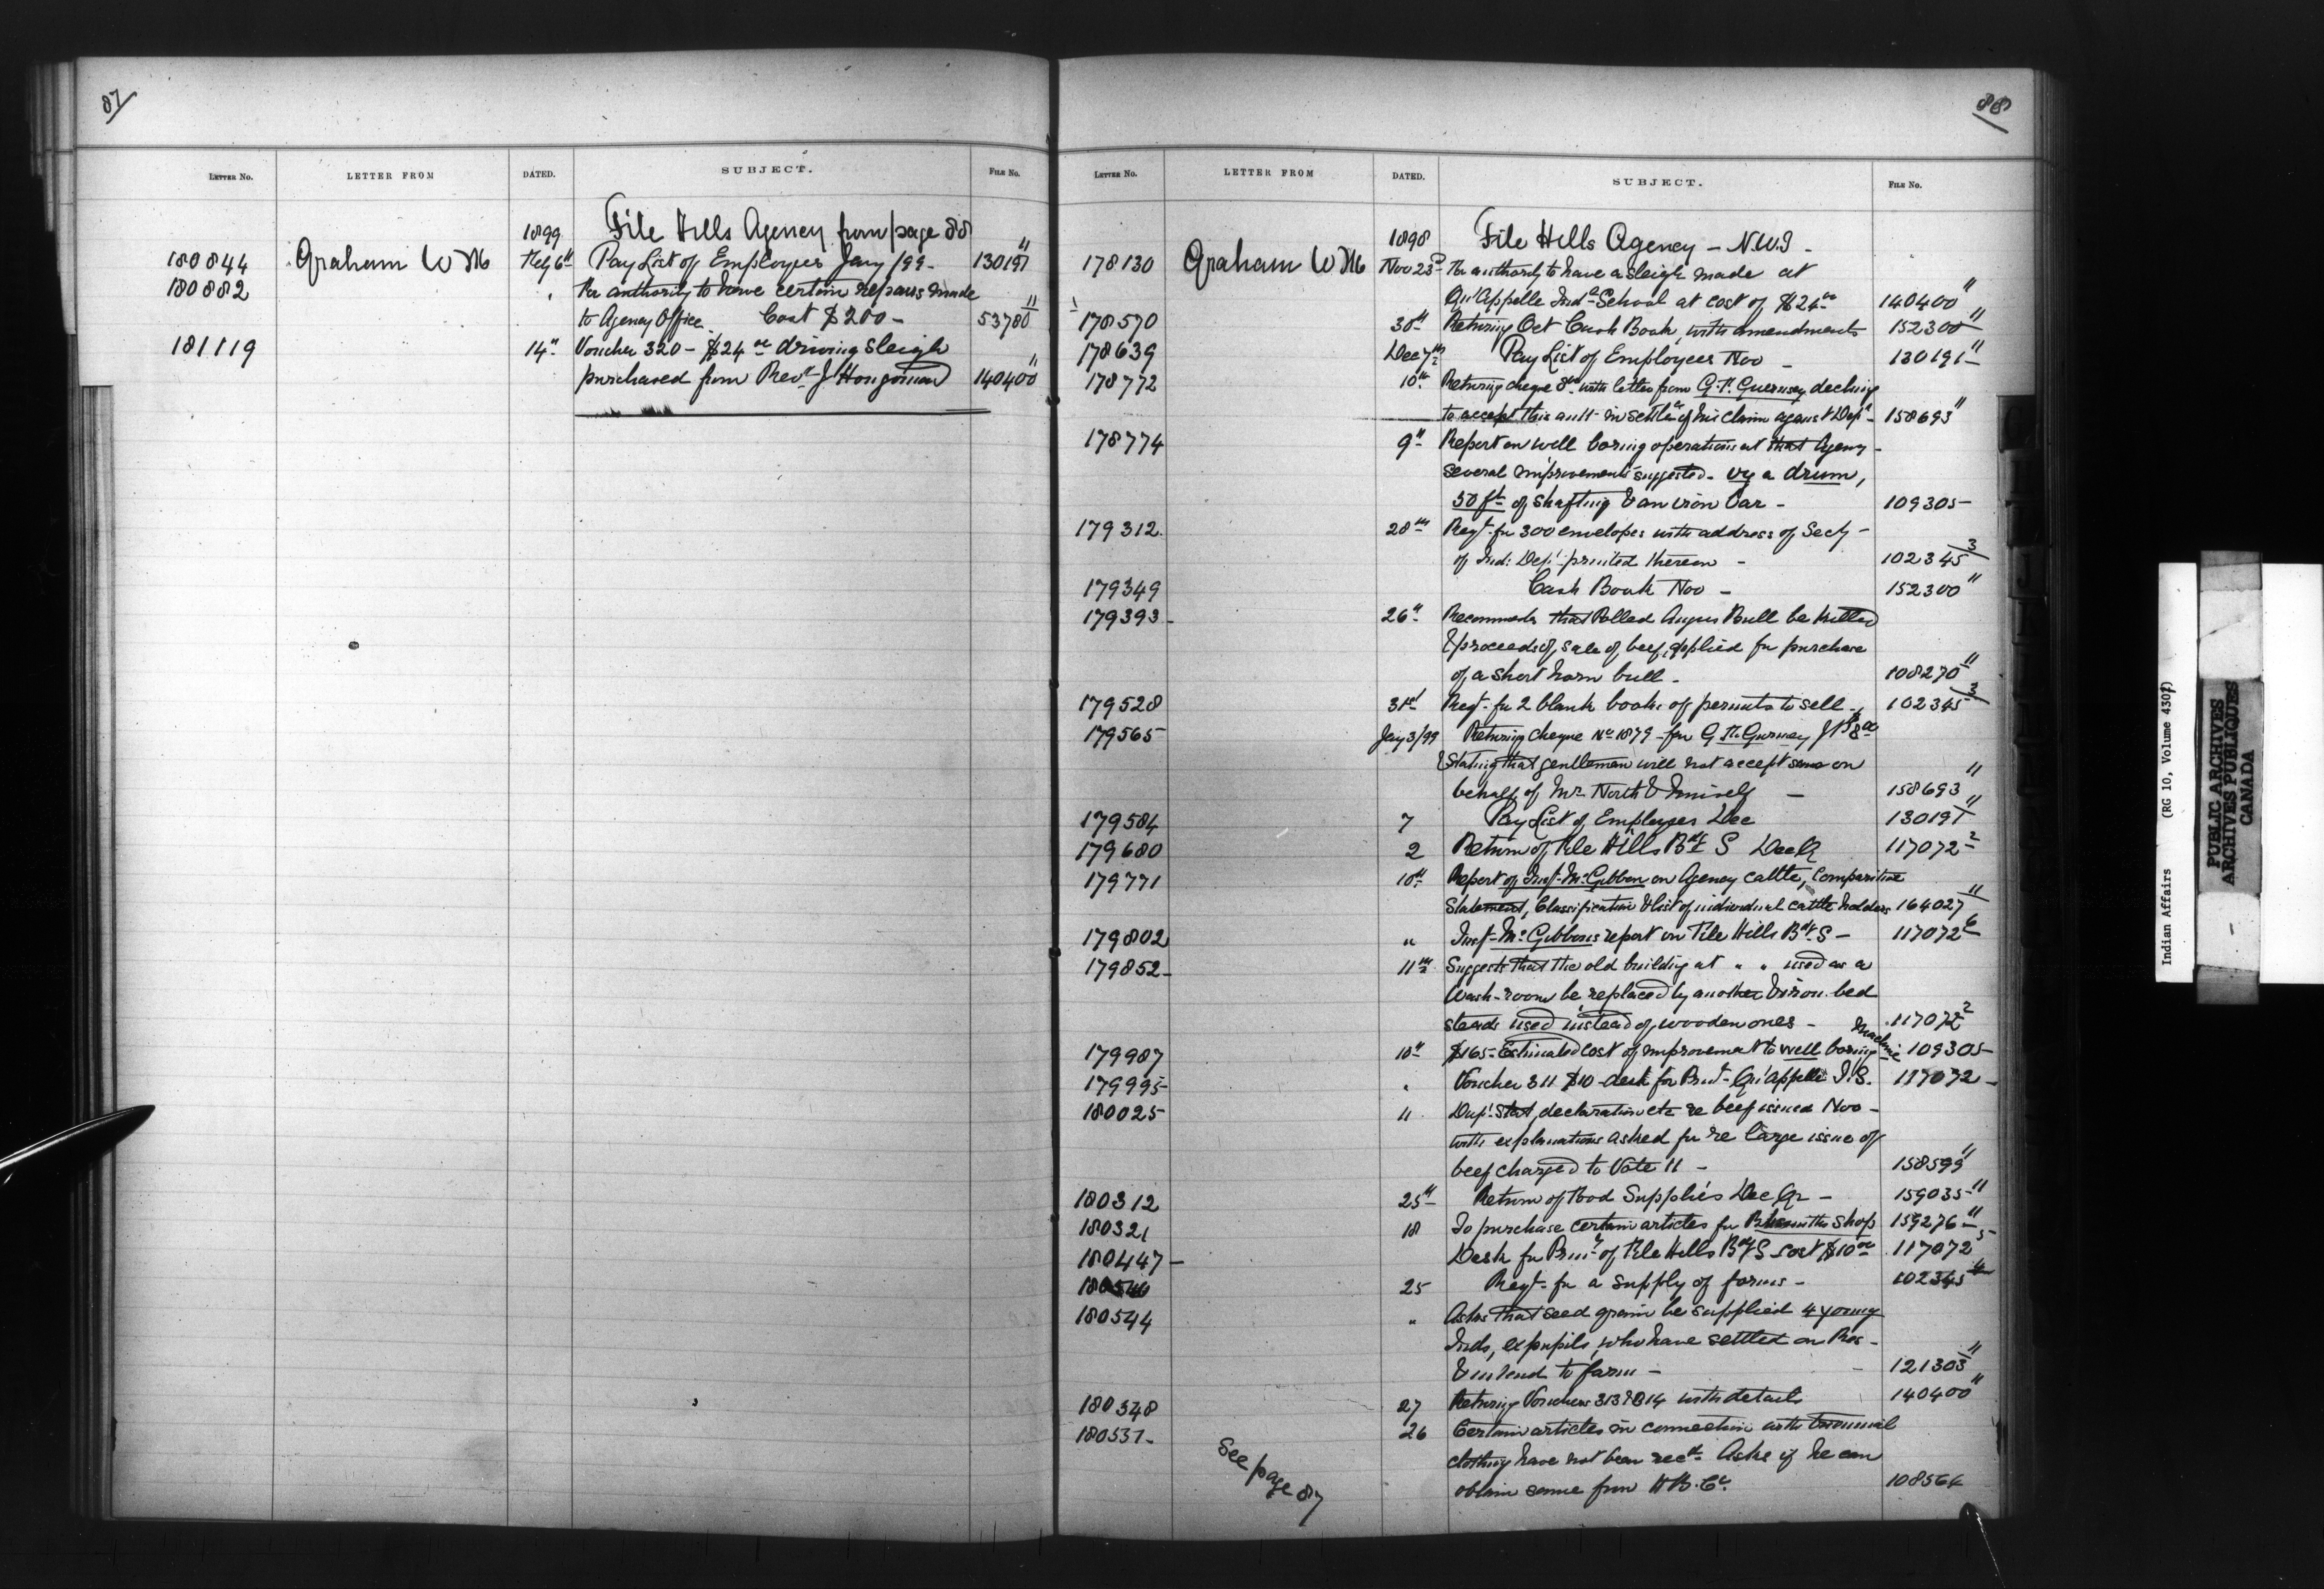 87
LETTER No. LETTER FROM DATED. SUBJECT. FILE No.
1899 File Hills Agency from page 88
180844 Graham W M Feby 6th Pay List of Employees Jany /99 - 130191-11
180882 " For authority to have certain repairs made
to Agency Office. Cost $200 - 53780-11
181119 14th Voucher 320 - $24.00 driving sleigh
purchased from Revd J Hougonard 140400-11
88
LETTER No. LETTER FROM DATED. SUBJECT. FILE No.
1898 File Hills Agency - N.W.T -
178130 Graham W M Nov 23rd For authority to have a sleigh made at
Qu'Appelle Indl School at cost of $24.00 140400-11
178570 30th Returning Oct Cash Book, with amendments 152300-11
178639 Dec 7th Pay List of Employees Nov - 130191-11
178772 10th Returning cheque with letter from G. H. Guernsey declining
to accept this amt in settlt of his claim against Dept - 158693-11
178774 9th Report on well boring operations at that Agency -
several improvements suggested - viz a drum,
50 ft of shafting & an iron Bar - 109305 -
179312. 28th Reqt for 300 envelopes with address of Secty -
of Ind: Dept printed thereon - 102345-3
179349 Cash Book Nov - 152300-11
179393 - 26th Recommends that Polled Angus Bull be killed
& proceeds of sale of beef applied for purchase
of a short horn bull - 108270-11
179528 31st Reqt for 2 blank books of permits to sell - 102345-3
179565 Jany 3/99 Returning cheque No 1879 - for G H Gurnsey J P $8.00
& Stating that gentleman will not accept same on
behalf of Mr North & himself - 158693-11
179584 7 Pay List of Employees Dec 130191-11
179680 2 Return of File Hills Bdg S Dec Qr 117072-2
179771 10th Report of Insp. McGibbon on Agency cattle, Comparitive
Statement, Classification & list of individual cattle holders 164027-11
179802 " Insp - McGibbons report on File Hills Bdg S - 117072-6
179852 - 11th Suggests that the old building at " " used as a
Wash-room be replaced by another & iron bed
steads used instead of wooden ones - 117072-2
179987 10th $165 - Estimated cost of improvement to well boring machine 109305 -
179995 " Voucher 311 $10 - desk for Prin - Qu'Appelle I.S. 117072 -
180025 11 Dup. Stat, declaration etc re beef issued Nov -
with explanations asked for re large issue of
beef charged to Vote 11 - 158599-11
180312 25th Return of Food Supplies Dec Qr - 159035-11
180321 18 To purchase certain articles for Blksmiths shop 159276-11
180447 - Desk for Prin. of File Hills Bdg S cost $10.00 117072-5
180540 25 Reqt - for a supply of forms - 102345
180544 " Asks that seed grain be supplied 4 young
Inds, expupils, who have settled on Res -
& intend to farm - 121303-11
180348 27 Returning Vouchers 313 & 314 with details 140400-11
180537 - 26 Certain articles in connection with triennial
clothing have not been recd. Asks if he can
obtain same from H B. Co. 108564
See page 87
Indian Affairs (RG 10, Volume 4307)
PUBLIC ARCHIVES
ARCHIVES PUBLIQUES
CANADA